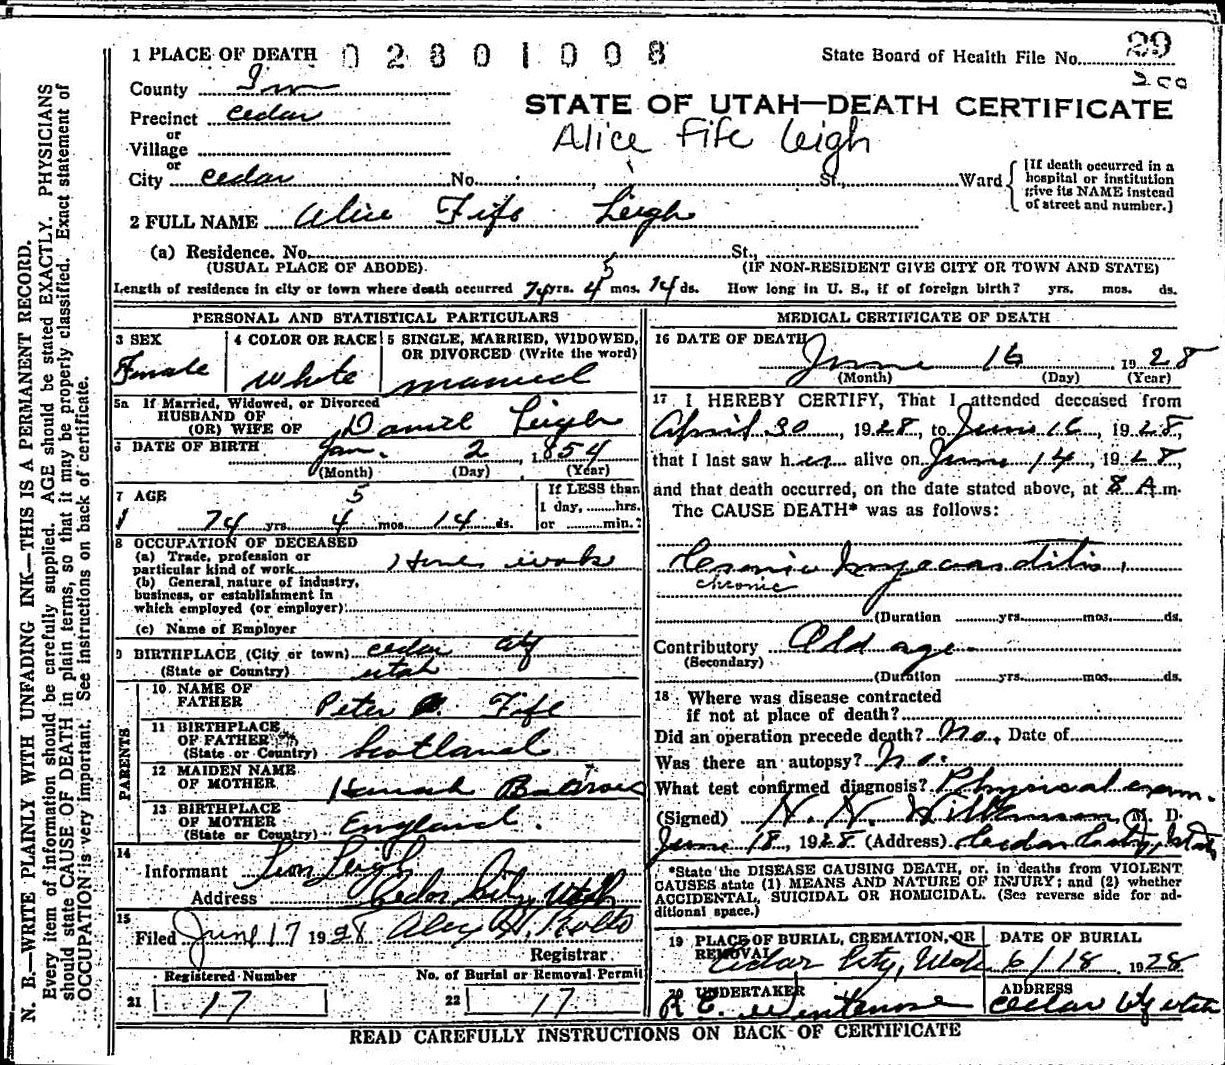 1 PLACE OF DEATH 02801008 State Board of Health File No. 29
County Iron 300
Precinct Cedar
STATE OF UTAH—DEATH CERTIFICATE
or
Village
Alice Fife Leigh
or
City Cedar No. , St., Ward {[If death occurred in a
hospital or institution
give its NAME instead
of street and number.]
2 FULL NAME Alice Fife Leigh
(a) Residence. No. St.,
(USUAL PLACE OF ABODE) (IF NON-RESIDENT GIVE CITY OR TOWN AND STATE)
5
Length of residence in city or town where death occurred 74 yrs. 4 mos. 14 ds. How long in U. S., if of foreign birth? yrs. mos. ds.
PERSONAL AND STATISTICAL PARTICULARS
3 SEX
Female
4 COLOR OR RACE
White
5 SINGLE, MARRIED, WIDOWED,
OR DIVORCED (Write the word)
married
5a If Married, Widowed, or Divorced
HUSBAND OF
(OR) WIFE OF Daniel Leigh
6 DATE OF BIRTH Jan. 2, 1854
(Month) (Day) (Year)
7 AGE 5
74 yrs. 4 mos. 14 ds.
If LESS than
1 day, hrs.
or min.?
8 OCCUPATION OF DECEASED
(a) Trade, profession or
particular kind of work House work
(b) General nature of industry,
business, or establishment in
which employed (or employer)
(c) Name of Employer
9 BIRTHPLACE (City or town) Cedar City
(State or Country) Utah
PARENTS
10 NAME OF
FATHER Peter Fife
11 BIRTHPLACE
OF FATHER
(State or Country) Scotland
12 MAIDEN NAME
OF MOTHER
13 BIRTHPLACE
OF MOTHER
(State or Country) England.
14
Informant Leigh
Address Cedar City, Utah
15
Filed June 17 1928 Alex H. Rollo
Registrar
Registered Number
21 17
No. of Burial or Removal Permit
22 17
MEDICAL CERTIFICATE OF DEATH
16 DATE OF DEATH
June 16 1928
(Month) (Day) (Year)
17 I HEREBY CERTIFY, That I attended deceased from
April 30, 1928, to June 16, 1928,
that I last saw her alive on June 14, 1928,
and that death occurred, on the date stated above, at 8 A.m.
The CAUSE DEATH* was as follows:
Chronic Myocarditis,
chronic
(Duration yrs. mos. ds.
Contributory Old age
(Secondary)
(Duration yrs. mos. ds.
18 Where was disease contracted
if not at place of death?
Did an operation precede death? No. Date of
Was there an autopsy? No.
What test confirmed diagnosis? Physical exam.
(Signed) , (M. D.
June 18, 1928 (Address) Cedar City, Utah
*State the DISEASE CAUSING DEATH, or, in deaths from VIOLENT
CAUSES state (1) MEANS AND NATURE OF INJURY; and (2) whether
ACCIDENTAL, SUICIDAL OR HOMICIDAL. (See reverse side for ad-
ditional space.)
19 PLACE OF BURIAL, CREMATION, OR
REMOVAL
Cedar City, Utah
DATE OF BURIAL
6/18 1928
20 UNDERTAKER
ADDRESS
Cedar City Utah
READ CAREFULLY INSTRUCTIONS ON BACK OF CERTIFICATE
N. B.—WRITE PLAINLY WITH UNFADING INK—THIS IS A PERMANENT RECORD.
Every item of information should be carefully supplied. AGE should be stated EXACTLY. PHYSICIANS
should state CAUSE OF DEATH in plain terms, so that it may be properly classified. Exact statement of
OCCUPATION is very important. See instructions on back of certificate.